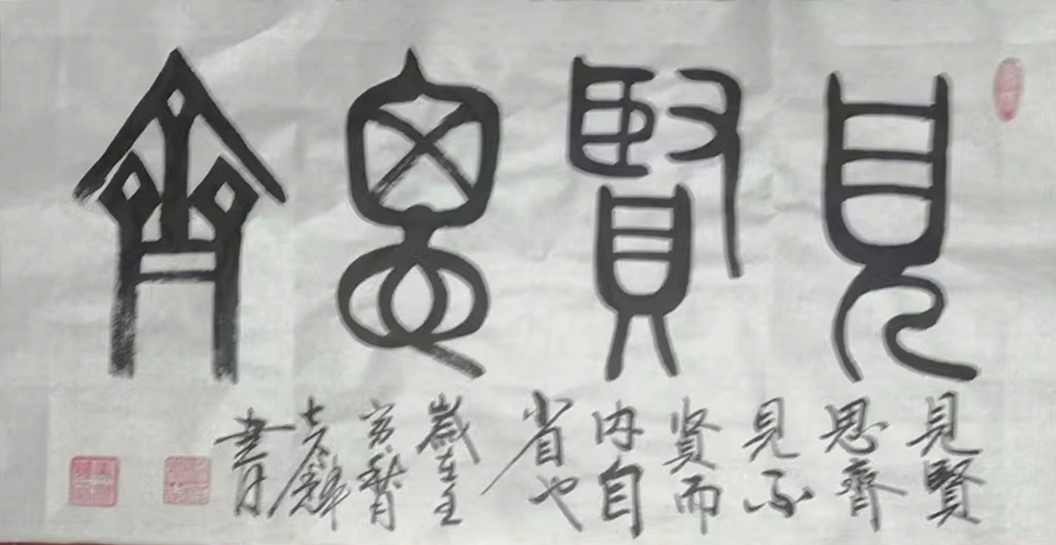 見賢思齊
見賢
思齊
見不
贤而
内自
省也
歲在壬
寅
書